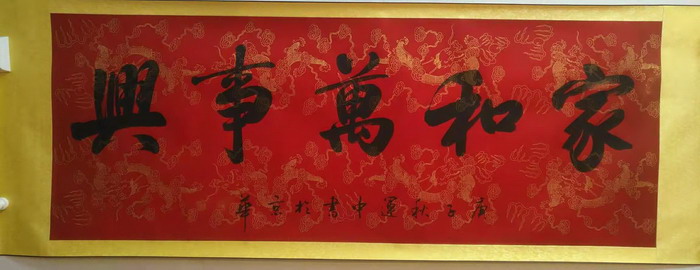 家和萬事興
庚子秋中書於京華